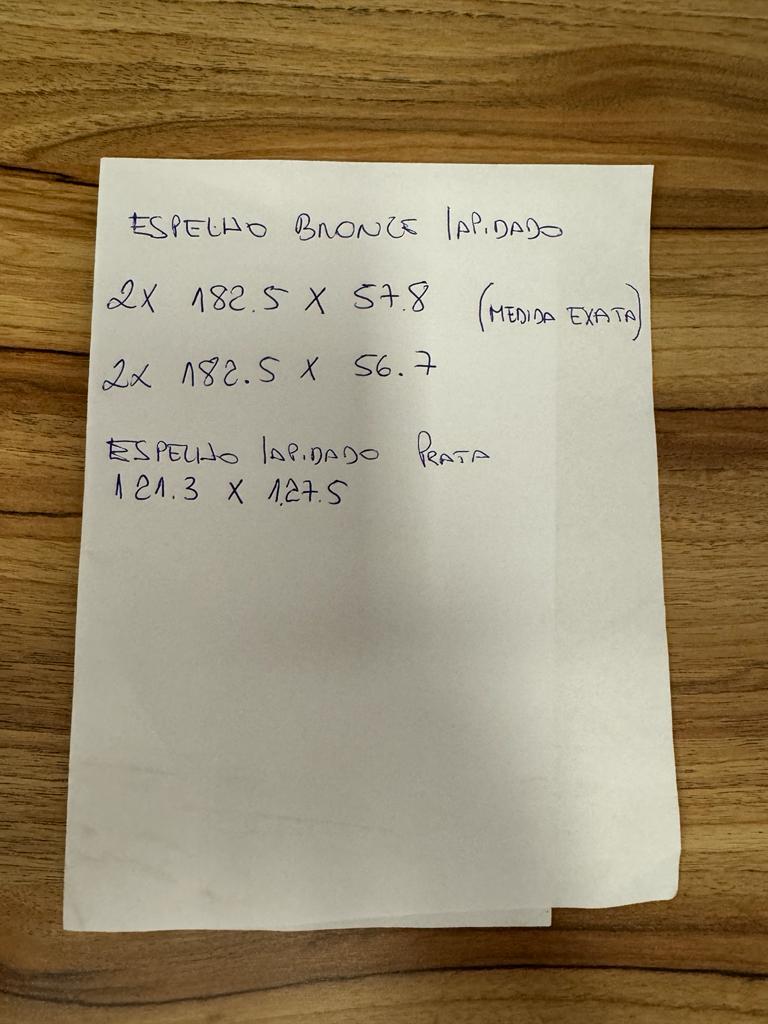 ESPELHO BRONZE lAPiDADO
2x 182.5 x 57.8 (MEDIDA EXATA)
2x 182.5 x 56.7
ESPELHO lAPiDADO PRATA
121.3 x 127.5